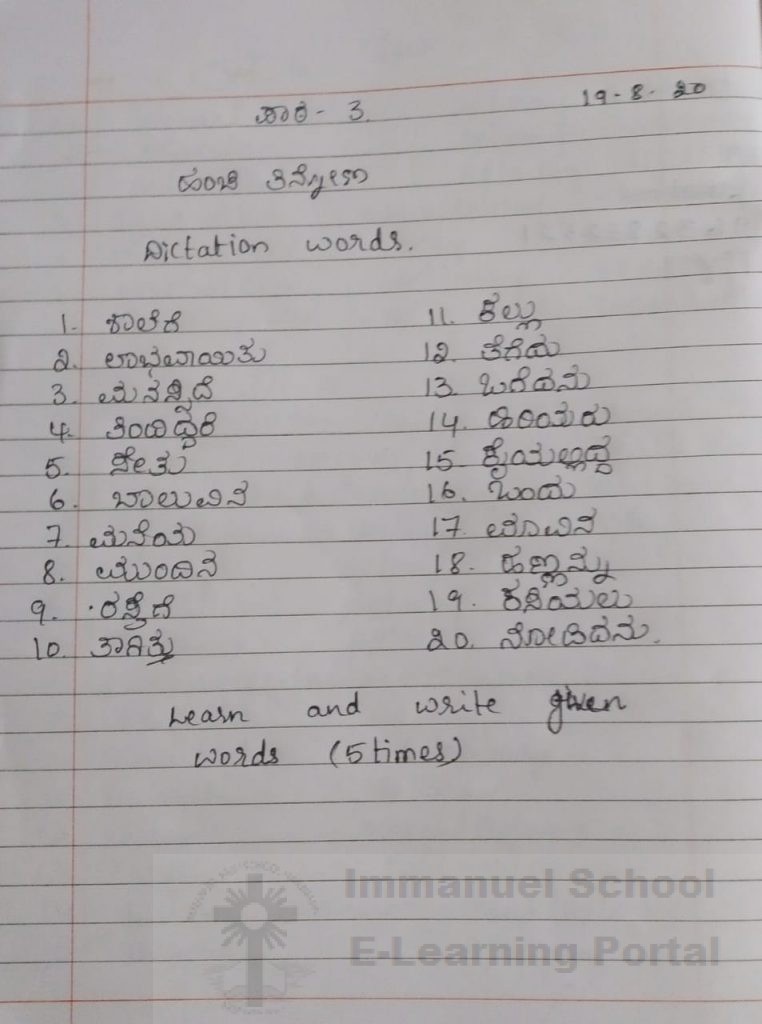 ಪಾಠ - 3. 19-8-20
ಹಂಚಿ ತಿನ್ನೋಣ
Dictation words.
1. 11. ಕಲ್ಲು
2. ಲಾಭವಾಯಿತು 12. ತೆಗೆದು
3. 13. ಒಗೆದನು
4. 14. ಹಿರಿಯರು
5. 15. ಕೈಯಲ್ಲಿದ್ದ
6. ಬಾಲುವಿನ 16. ಒಂದು
7. ಮನೆಯ 17. ಮಾವಿನ
8. ಮುಂದಿನ 18. ಹಣ್ಣನ್ನು
9. 19. ಕಡಿಯಲು
10. ತಾಗಿತ್ತು 20. ನೋಡಿದನು.
Learn and write given
words (5 times)
Immanuel School
E-Learning Portal